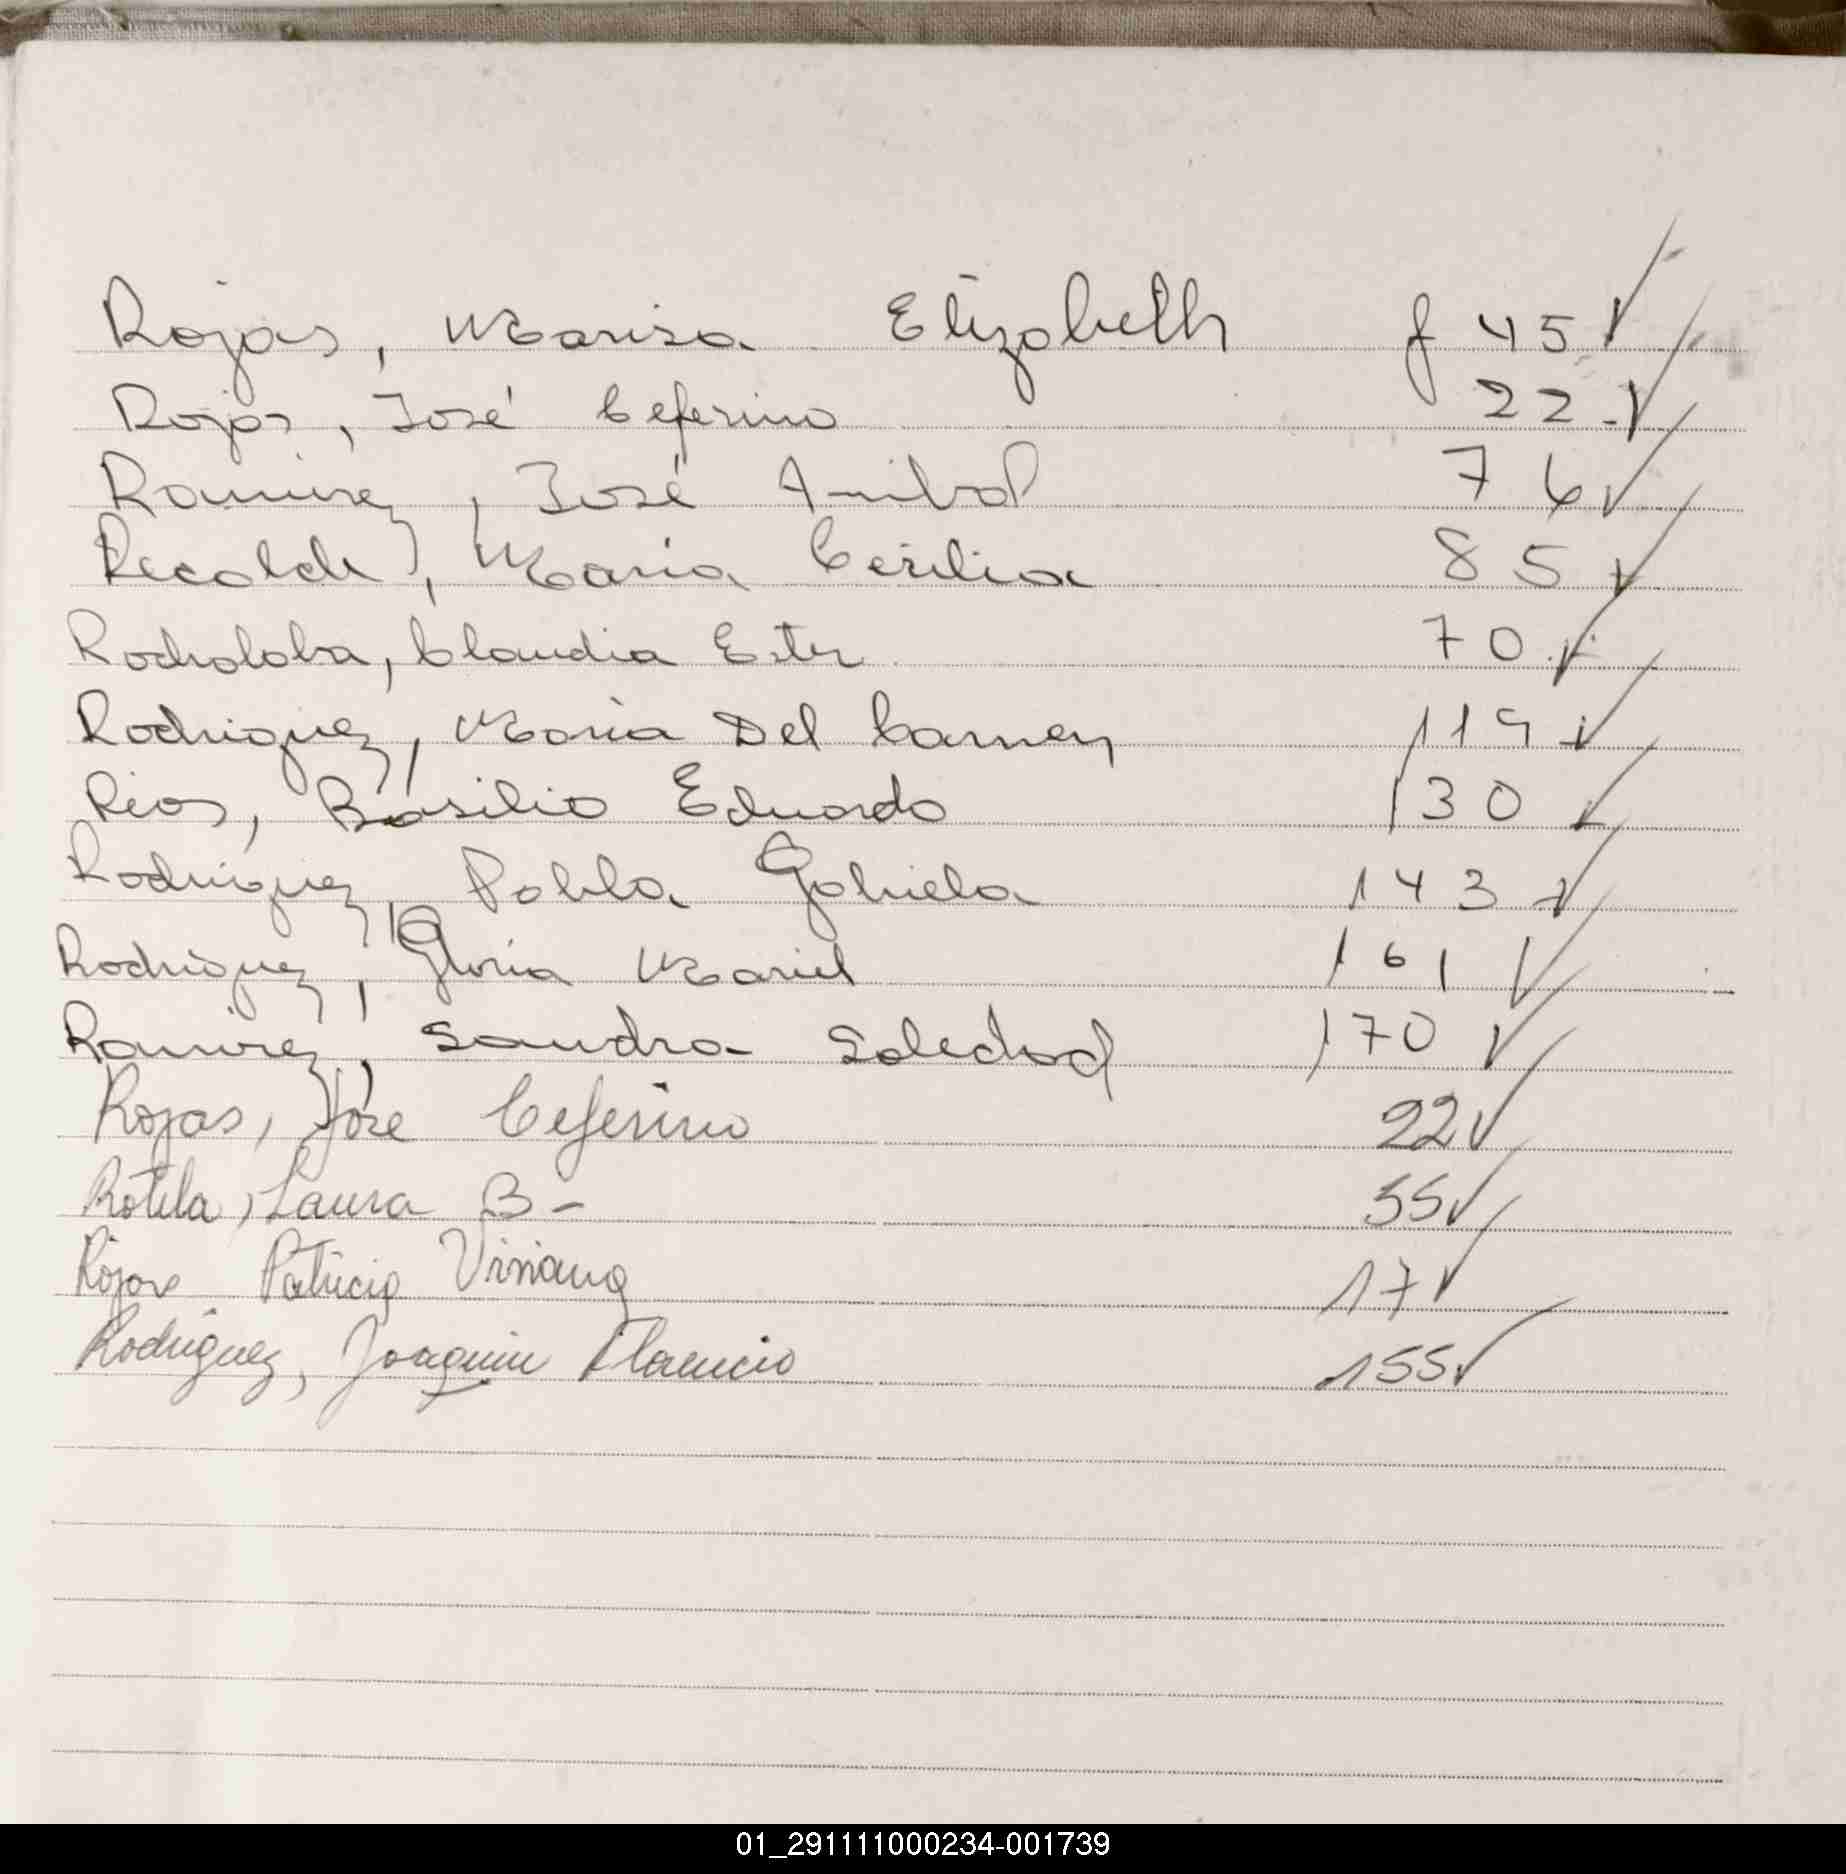 Rojas, Marisa Elizabeth f 45 ✓
Rojas, José Ceferino 22 ✓
Ramirez, José Anibal 76 ✓
Recalde, Maria Cecilia 85 ✓
Rodroloba, Claudia Ester 70 ✓
Rodriguez, Maria Del Carmen 119 ✓
Rios, Basilio Eduardo 130 ✓
Rodriguez, Pabla Gabriela 143 ✓
Rodriguez, Gloria Mariel 161 ✓
Ramirez, Sandra Soledad 170 ✓
Rojas, José Ceferino 22 ✓
Rotela, Laura B- 55 ✓
Rojas Patricia Viviana 17 ✓
Rodriguez, Joaquin Florencio 155 ✓
01_291111000234-001739